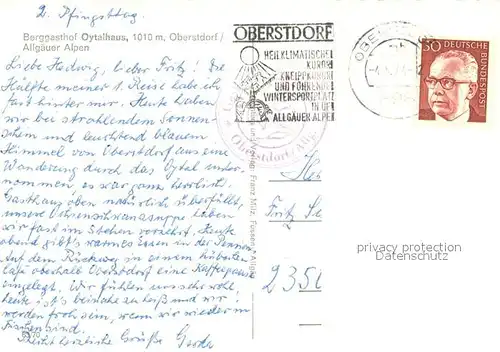 2. Pfingsttag.
Berggasthof Oytalhaus, 1010 m, Oberstdorf /
Allgäuer Alpen
Liebe Hedwig, lieber Fritz! Die
Hälfte meiner 1. Reise habe ich
fast hinter mir. Heute haben
wir bei strahlendem Sonnen-
schein und leuchtend blauem
Himmel von Oberstdorf aus eine
Wanderung durch das Oytal unter-
nommen, es war ganz herrlich.
Gasthaus oben natürlich überfüllt,
unsere Ochsenschwanzsuppe haben
wir fast im Stehen verzehrt. Heute
abend gibt's warmes Essen in der Pension.
Auf dem Rückweg in einem hübschen
Café oberhalb Oberstdorf eine Kaffeepause
eingelegt. Wir fühlen uns sehr wohl,
heute ist's beinahe zu heiß und wir
werden froh sein, wenn wir wieder in
Fischen sind.
Recht herzliche Grüße Gerda
OBERSTDORF
HEILKLIMATISCHER
KURORT
KNEIPPKURORT
UND FÜHRENDER
WINTERSPORTPLATZ
IN DEN
ALLGÄUER ALPEN
Oberstdorf/Allg.
Franz Milz, Füssen/Allgäu
30
DEUTSCHE
BUNDESPOST
Fritz
235
privacy protection
Datenschutz